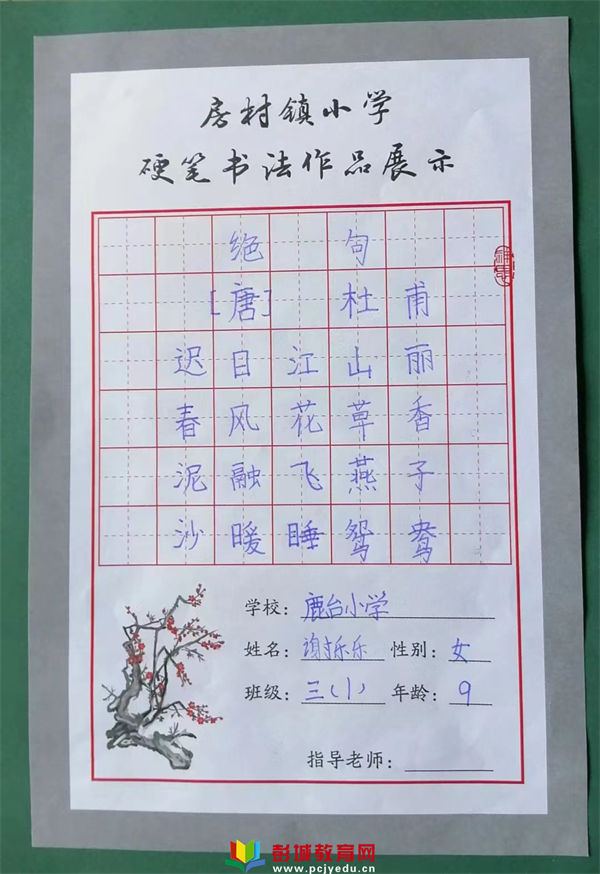 房村镇小学
硬笔书法作品展示
绝句
[唐] 杜甫
迟日江山丽
春风花草香
泥融飞燕子
沙暖睡鸳鸯
学校：鹿台小学
姓名：谢乐乐 性别：女
班级：三(1) 年龄：9
指导老师：
彭城教育网
www.pcjyedu.cn